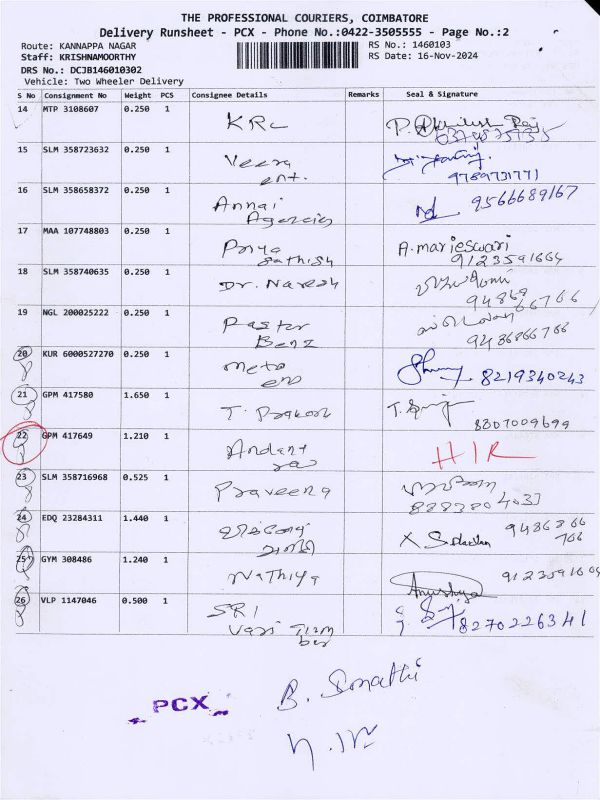 THE PROFESSIONAL COURIERS, COIMBATORE
Delivery Runsheet - PCX - Phone No.:0422-3505555 - Page No.:2
Route: KANNAPPA NAGAR
RS No.: 1460103
Staff: KRISHNAMOORTHY
RS Date: 16-Nov-2024
DRS No.: DCJB146010302
Vehicle: Two Wheeler Delivery
S No Consignment No Weight PCS Consignee Details Remarks Seal & Signature
14 MTP 3108607 0.250 1 KRC
15 SLM 358723632 0.250 1 Veera
ent. 9789731771
16 SLM 358658372 0.250 1 Annai 9566689167
Agencies
17 MAA 107748803 0.250 1 Priya A. marieswari
Sathish 9123591664
18 SLM 358740635 0.250 1 Dr. Naresh
19 NGL 200025222 0.250 1 Pastor
Benz 9486866766
20 KUR 6000527270 0.250 1 meta
8219340243
21 GPM 417580 1.650 1 T.
8807009699
22 GPM 417649 1.210 1 H/R
23 SLM 358716968 0.525 1 Praveena
24 EDQ 23284311 1.440 1 9486866
766
25 GYM 308486 1.240 1 Nathiya
Anushya
26 VLP 1147046 0.500 1 SRI
8270226341
PCX
B.